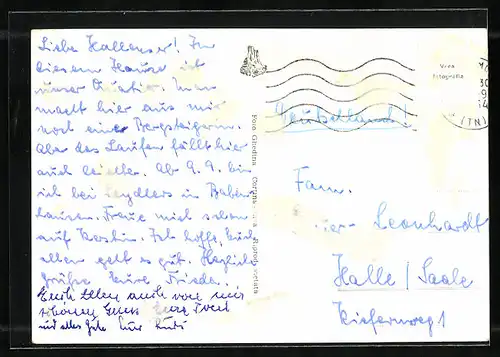 Liebe Hallenser! In
diesem Hause ist
unser Quartier. Man
macht hier aus mir
noch eine Bergsteigerin.
Aber das Laufen fällt hier
auch leichter. Ab 9. 9. bin
ich bei in
hausen. Freue mich schon
auf Kerstin. Ich hoffe, Euch
allen geht es gut. Herzliche
Grüße Eure Frieda.
Euch allen auch von mir
schönen Gruss Eure
und alles Gute Eure
Vera
fotografia
30
(TN)
Deutschland!
Foto Ghedina
Fam.
Leonhardt
Halle/Saale
Kiefernweg 1